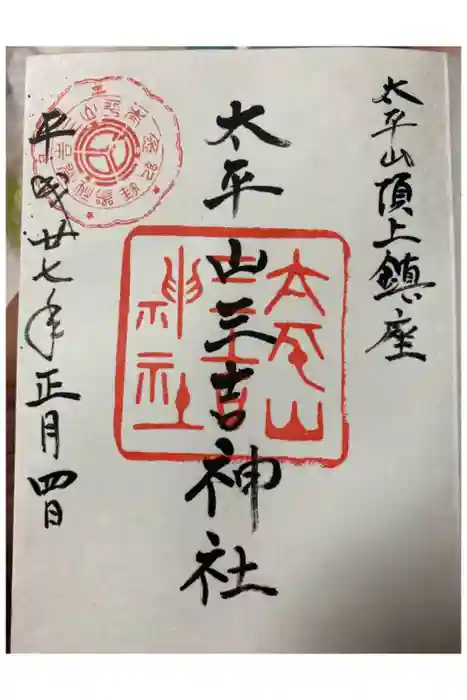 太平山頂上鎮座
太平山三吉神社
平成廿七年正月四日
太平山
三吉
神社